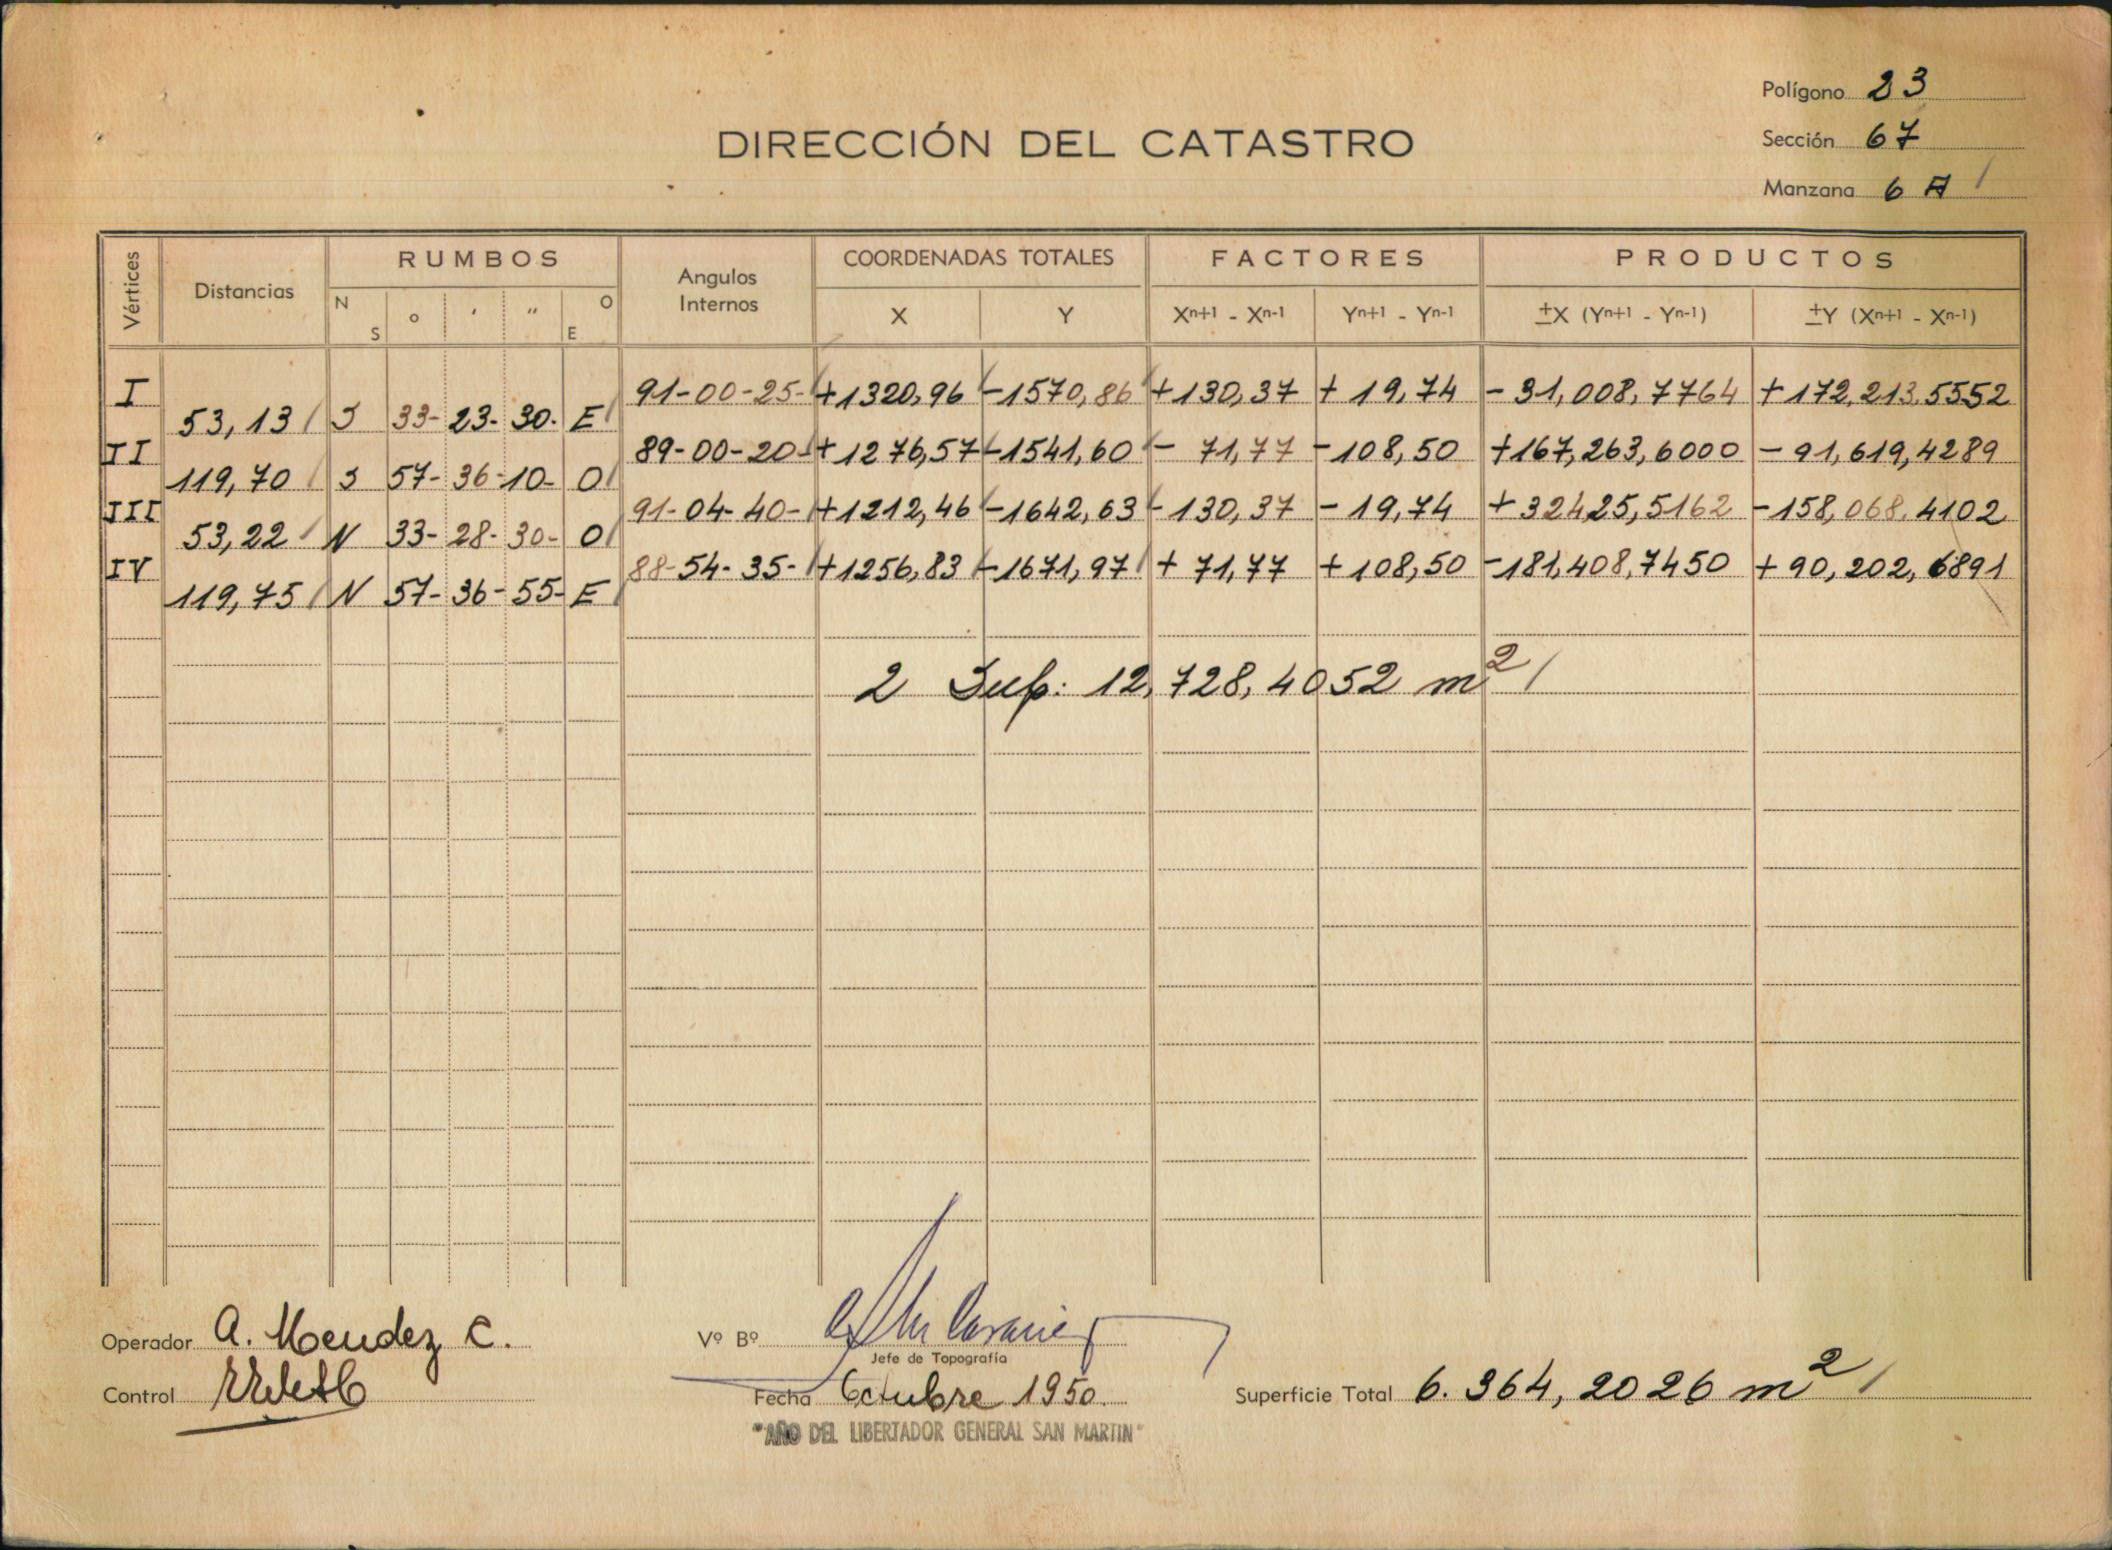 Polígono 23
DIRECCIÓN DEL CATASTRO
Sección 67
Manzana 6 A
Vértices Distancias RUMBOS Angulos Internos COORDENADAS TOTALES FACTORES PRODUCTOS
N S o ' " O E X Y Xn+1 - Xn-1 Yn+1 - Yn-1 ±X (Yn+1 - Yn-1) ±Y (Xn+1 - Xn-1)
I 91-00-25- +1320,96 -1570,86 +130,37 + 19,74 - 31,008,7764 + 172,213,5552
53,13 S 33- 23- 30- E
II 89-00-20- +1276,57 -1541,60 - 71,77 -108,50 +167,263,6000 - 91,619,4289
119,70 S 57- 36- 10- O
III 91-04-40- +1212,46 -1642,63 -130,37 - 19,74 + 32425,5162 -158,068,4102
53,22 N 33- 28- 30- O
IV 88-54-35- +1256,83 -1671,97 + 71,77 +108,50 -181,408,7450 + 90,202,6891
119,75 N 57- 36- 55- E
2 Sup: 12,728,4052 m²
Operador A. Mendez C.
Vº Bº
Jefe de Topografía
Control
Fecha Octubre 1950.
Superficie Total 6.364,2026 m²
"AÑO DEL LIBERTADOR GENERAL SAN MARTIN"